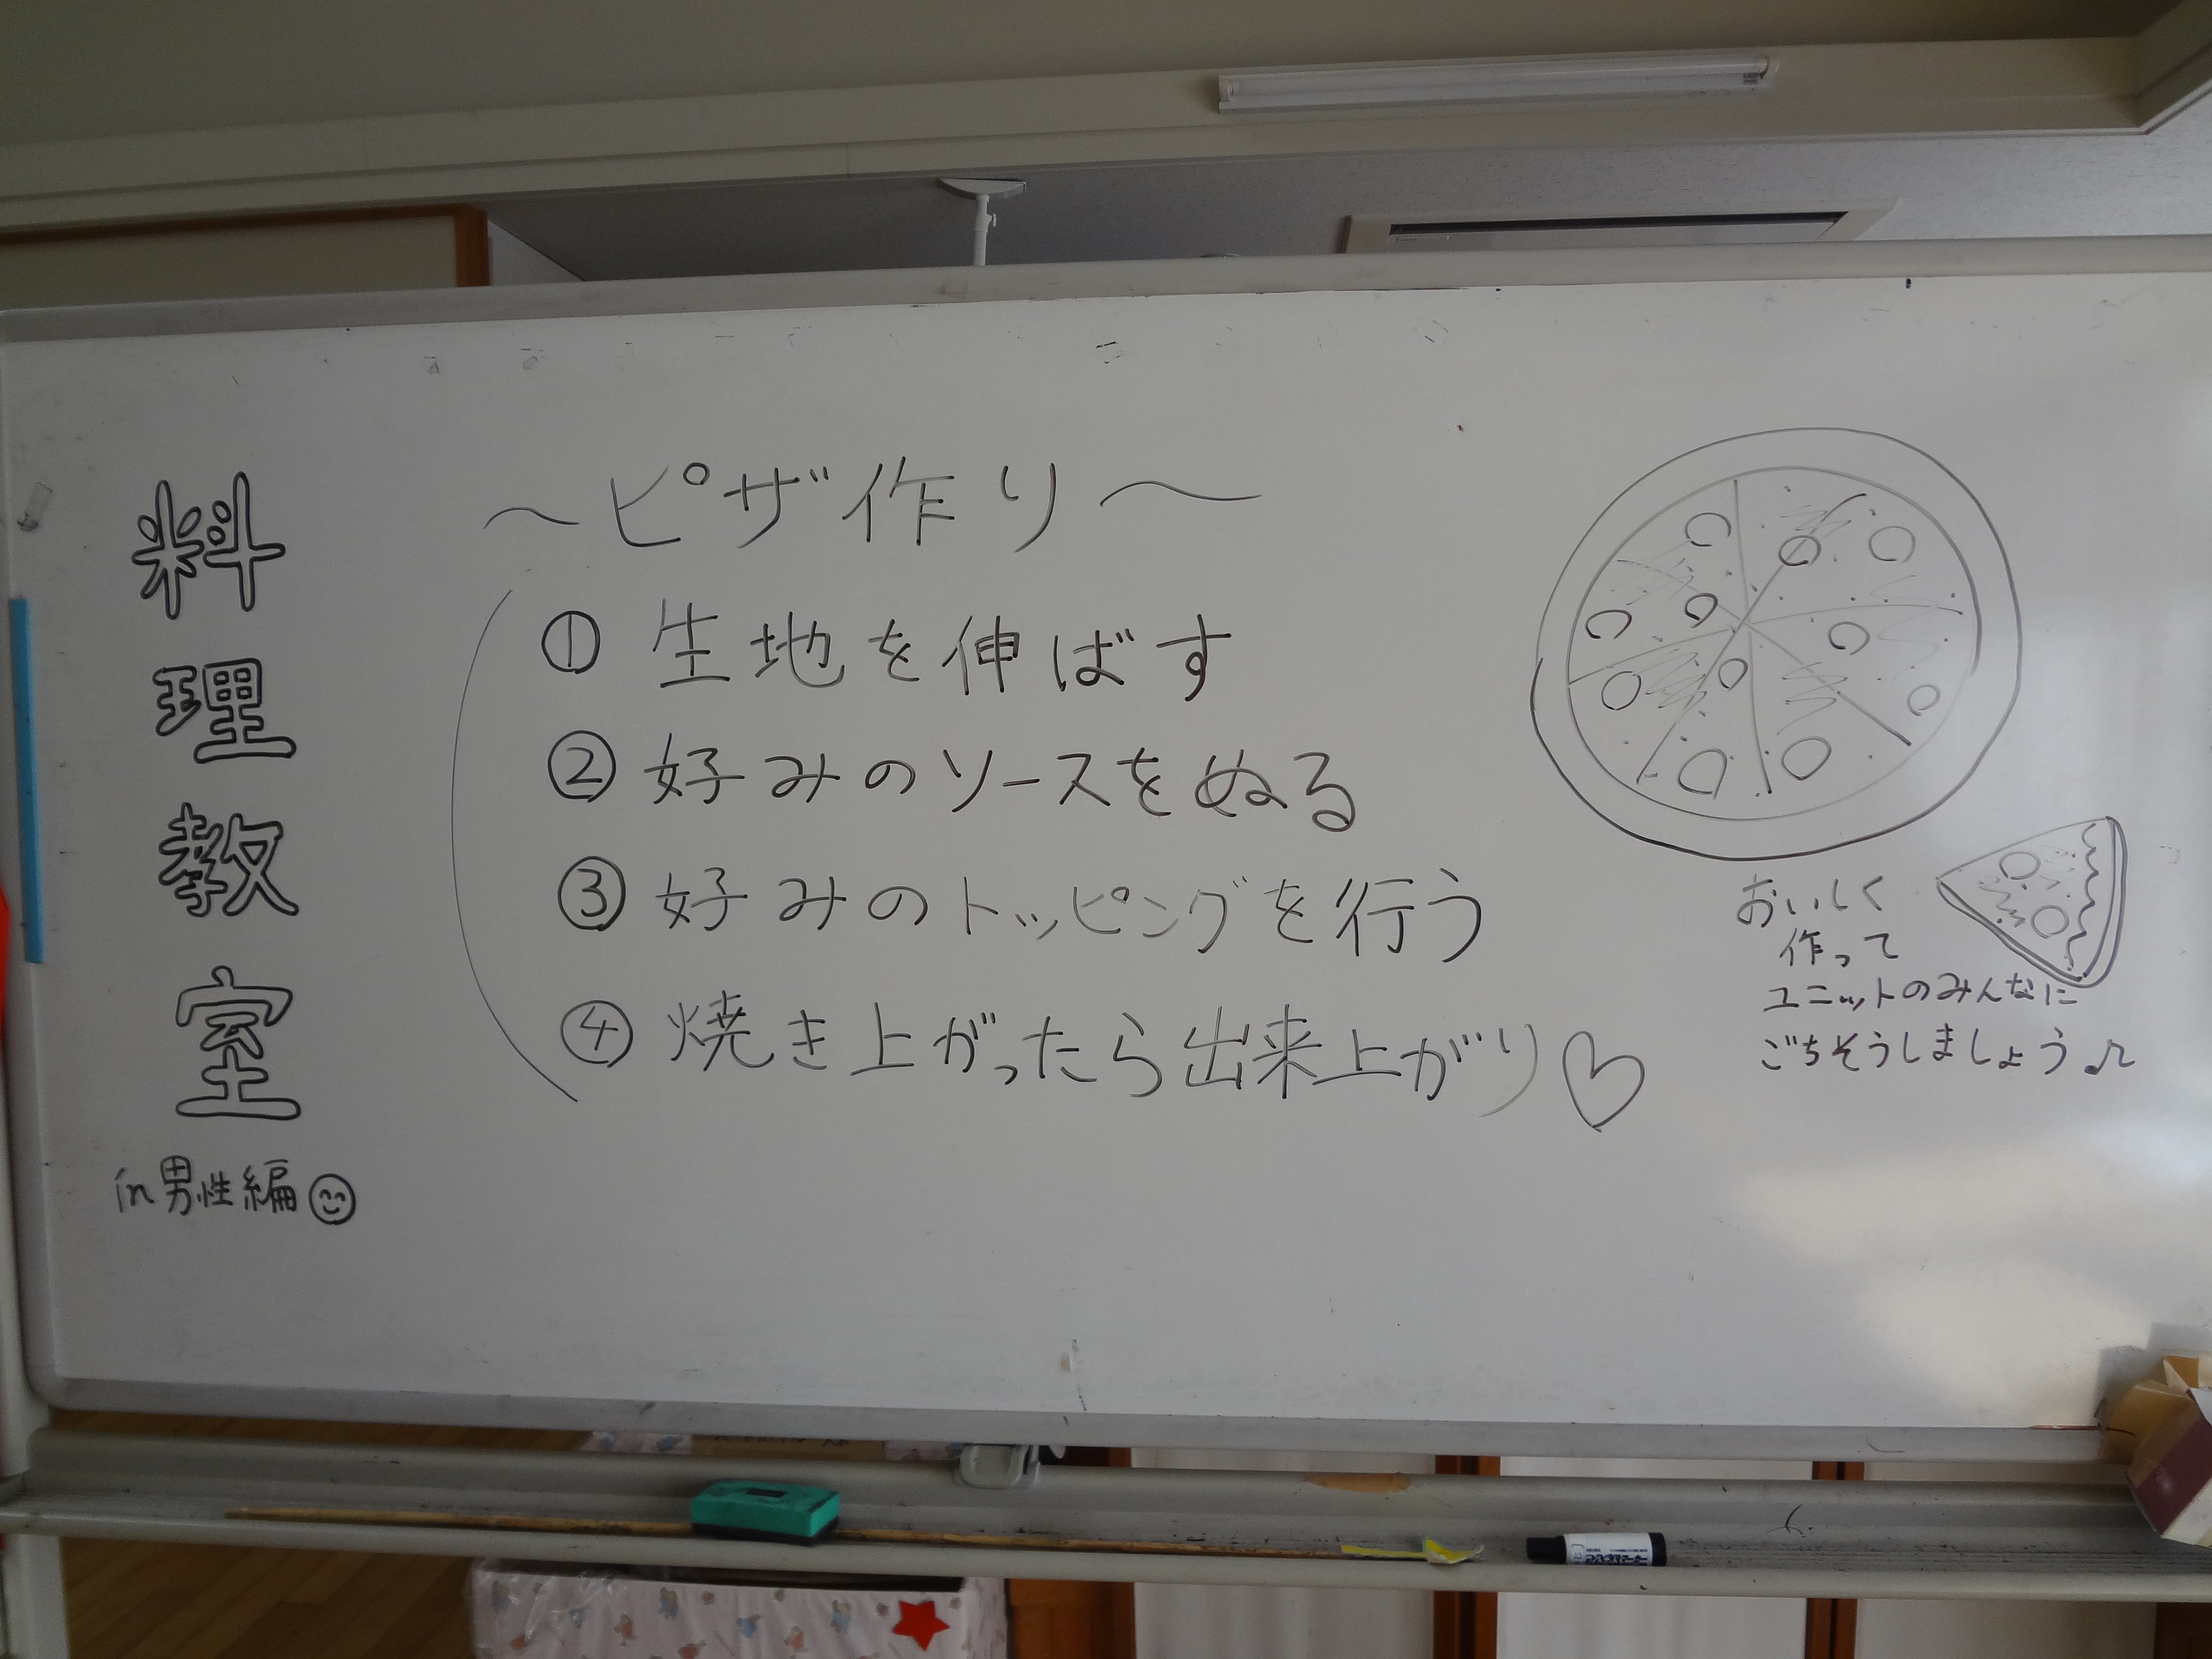 料理教室
in男性編
～ピザ作り～
① 生地を伸ばす
② 好みのソースをぬる
③ 好みのトッピングを行う
④ 焼き上がったら出来上がり♡
おいしく
作って
ユニットのみんなに
ごちそうしましょう♪